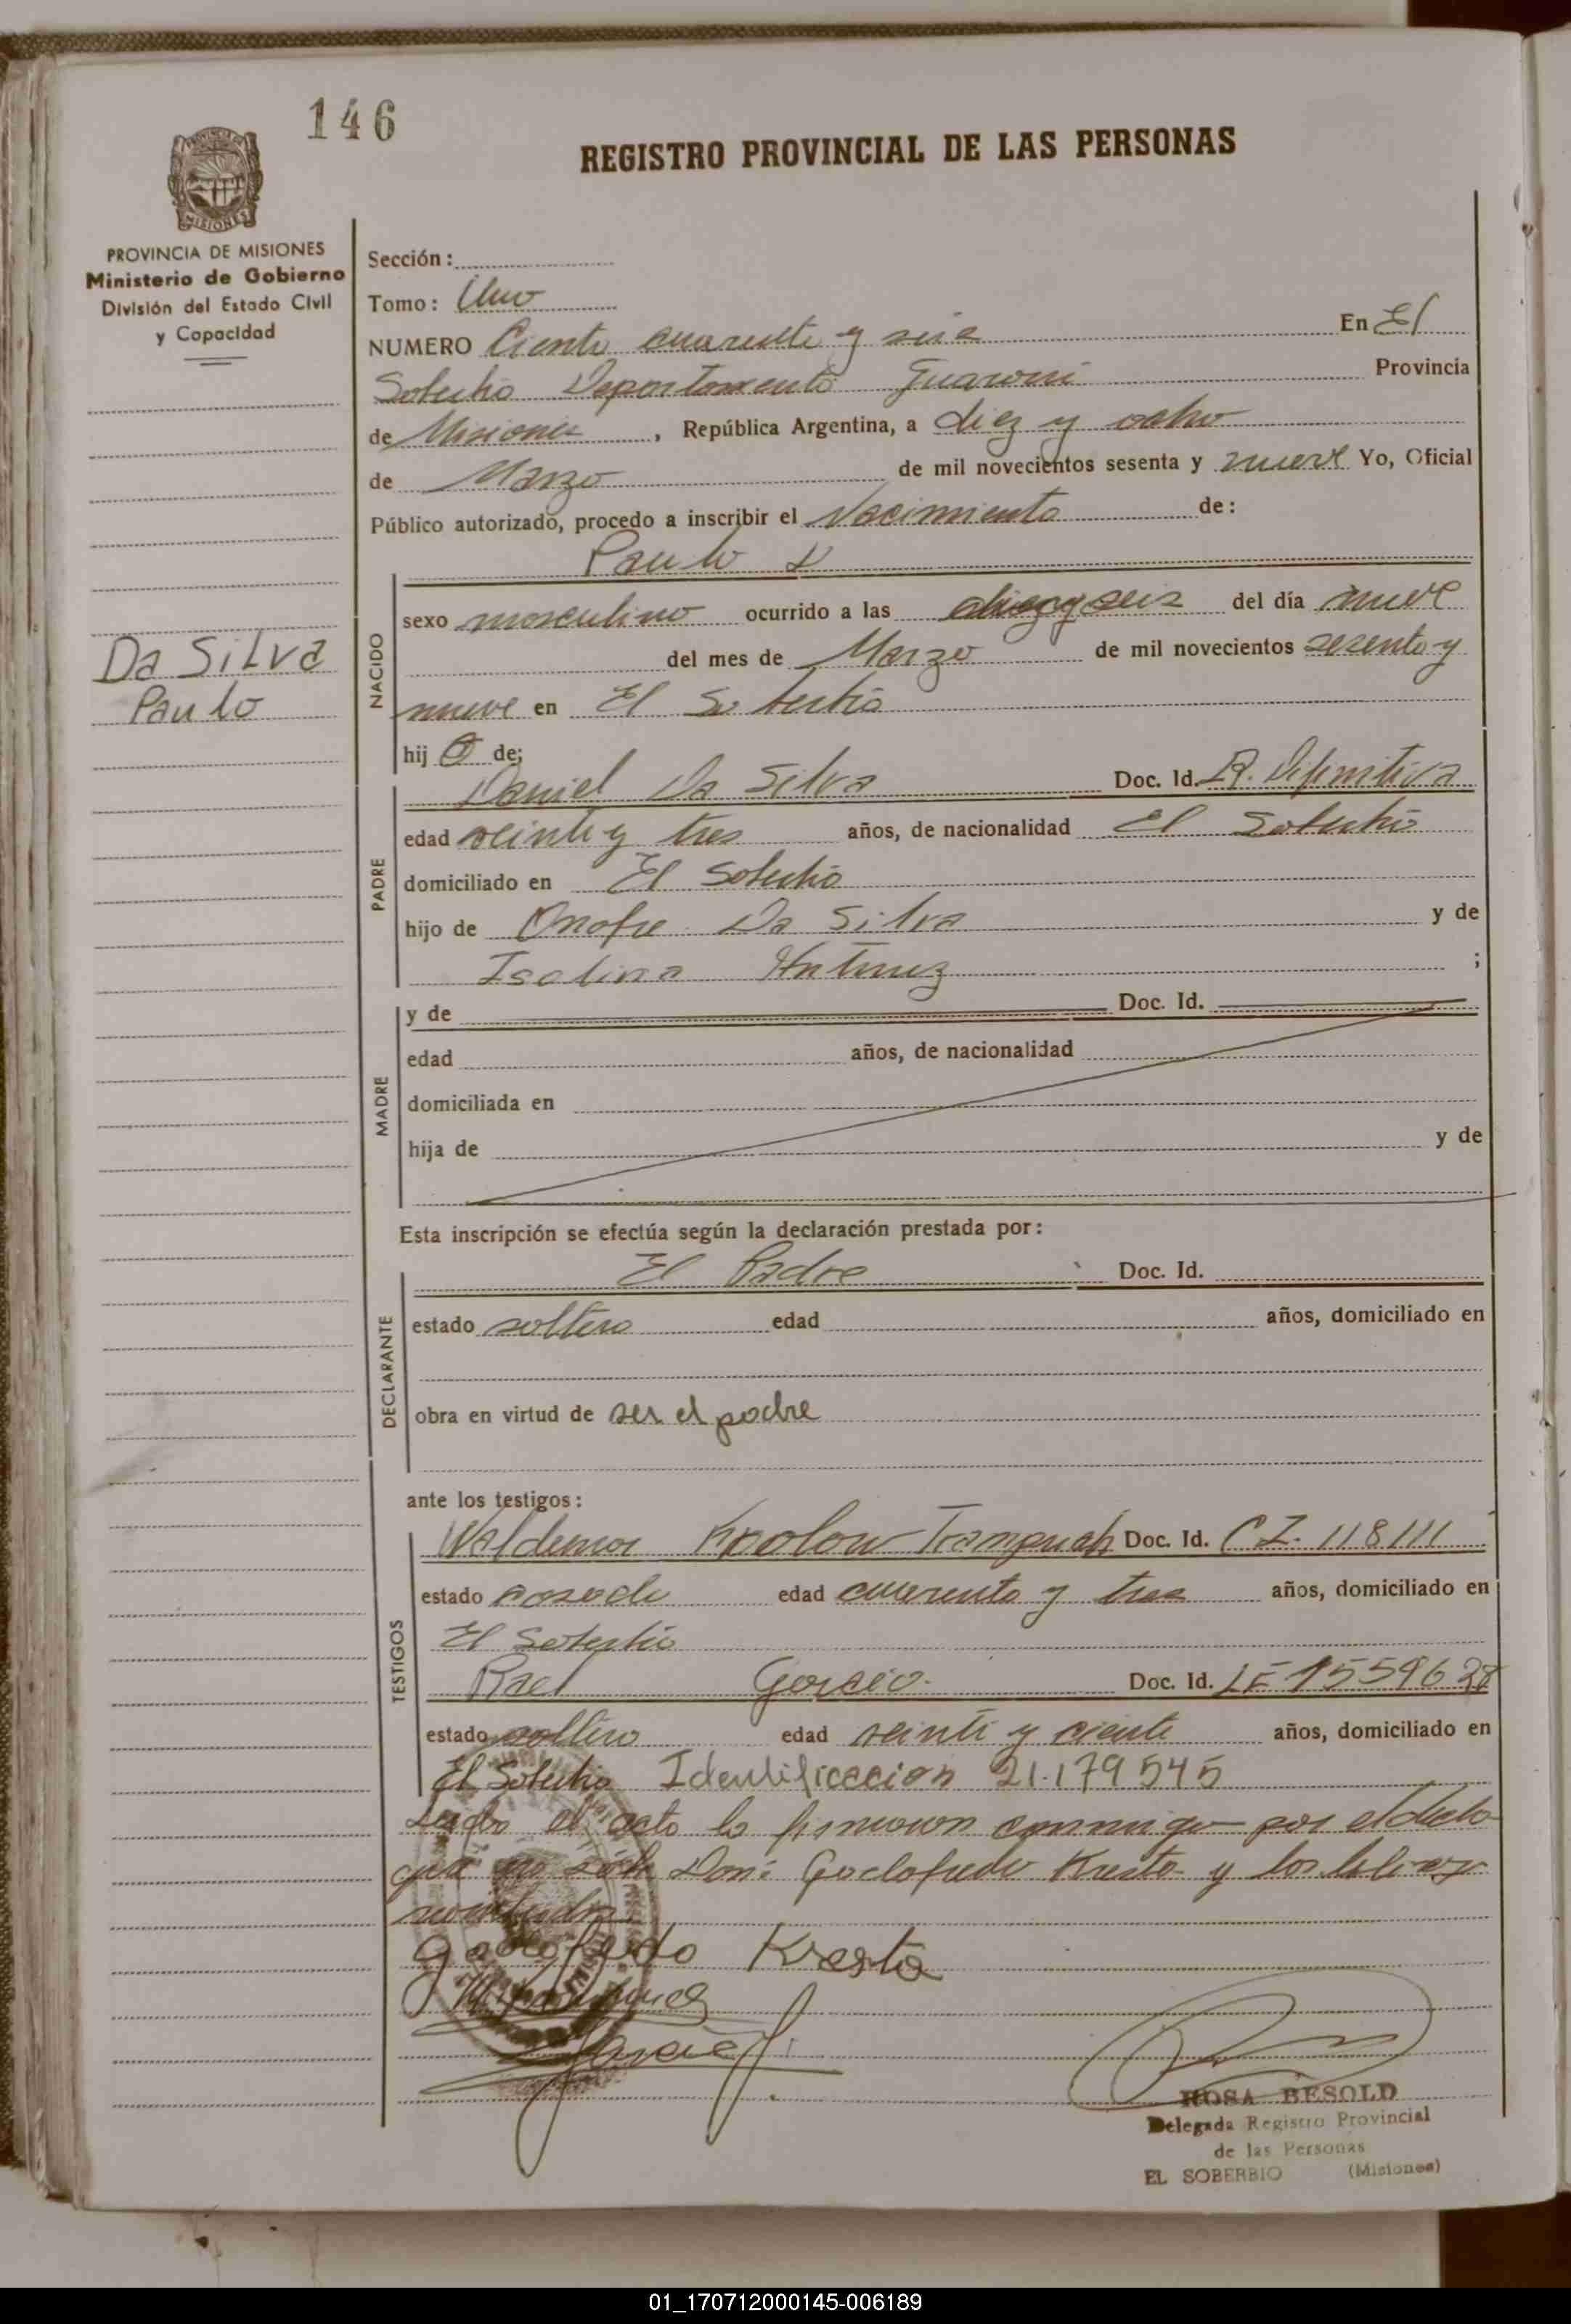 146
REGISTRO PROVINCIAL DE LAS PERSONAS
MISIONES
PROVINCIA DE MISIONES
Ministerio de Gobierno
División del Estado Civil
y Capacidad
Da Silva
Paulo
Sección:
Tomo: Uno
NUMERO Ciento cuarenta y seis En El
Soberbio Departamento Guarani Provincia
de Misiones, República Argentina, a diez y ocho
de Marzo de mil novecientos sesenta y nueve Yo, Oficial
Público autorizado, procedo a inscribir el Nacimiento de:
Paulo
NACIDO
sexo masculino ocurrido a las diez y seis del día nueve
del mes de Marzo de mil novecientos sesenta y
nueve en El Soberbio
hij o de;
PADRE
Daniel Da Silva Doc. Id. R. Difinitiva
edad veinti y tres años, de nacionalidad El Soberbio
domiciliado en El Soberbio
hijo de Onofre Da Silva y de
Isolina ;
MADRE
y de Doc. Id.
edad años, de nacionalidad
domiciliada en
hija de y de
Esta inscripción se efectúa según la declaración prestada por:
DECLARANTE
El Padre Doc. Id.
estado soltero edad años, domiciliado en
obra en virtud de ser el padre
ante los testigos:
TESTIGOS
Waldemar Doc. Id. C I. 118111
estado casado edad cuarenta y tres años, domiciliado en
El Soberbio
Garcia Doc. Id. LE
estado soltero edad veinti y años, domiciliado en
El Soberbio Identificacion 21.179545
Leido el acta lo firmaron conmigo por el
que no Don: Godofredo Kresta y los
Godofredo Kresta
ROSA BESOLD
Delegada Registro Provincial
de las Personas
EL SOBERBIO (Misiones)
01_170712000145-006189